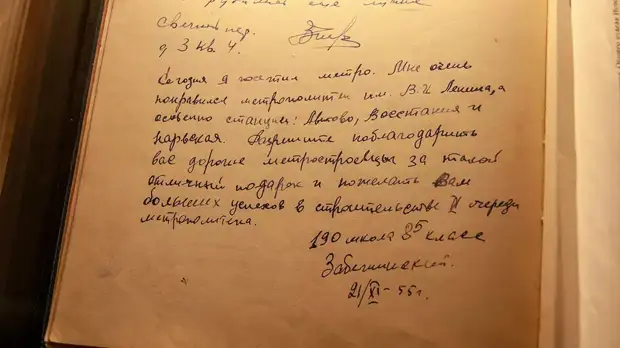 Свечной пер.
д 3 кв 4.
Сегодня я посетил метро. Мне очень
понравился метрополитен им. В.И Ленина, а
особенно станции: Автово, Восстания и
Нарвская. Разрешите поблагодарить
вас дорогие метростроевцы за такой
отличный подарок и пожелать Вам
больших успехов в строительстве II очереди
метрополитена.
190 школа 8 класс
21/XI-55г.